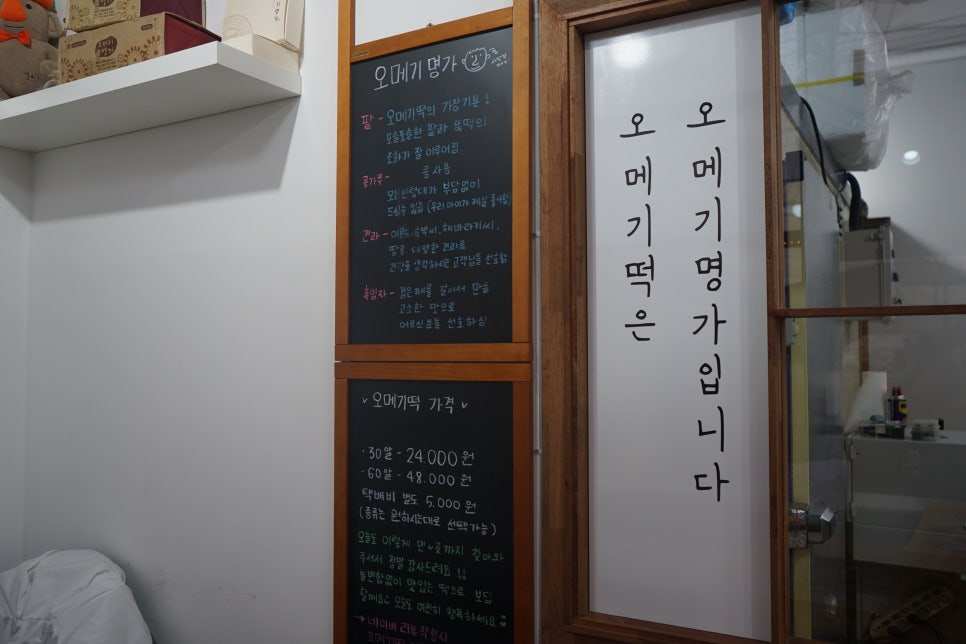 오메기 명가
팥 - 오메기떡의 가장 기본!
포슬포슬한 팥과 쑥떡의
조화가 잘 이루어짐
콩가루 - 콩 사용
모든 연령대가 부담없이
드실수 있음 (우리 아이가 제일 좋아함)
견과 - 아몬드, 호박씨, 해바라기씨,
땅콩 다양한 견과류
건강을 생각하시는 고객님들 선호함
흑임자 - 검은깨를 갈아서 만듦
고소한 맛으로
어르신분들 선호하심
오메기떡 가격
· 30알 - 24.000원
· 60알 - 48.000원
택배비 별도 5.000원
(종류는 원하시는대로 선택가능)
오늘도 이렇게 먼 곳까지 찾아와
주셔서 정말 감사드려요!!
늘변함없이 맛있는 떡으로 보답
할께요 오늘도 여전히 행복하세요
→ 네이버 리뷰 작성시
오메기떡은
오메기명가입니다